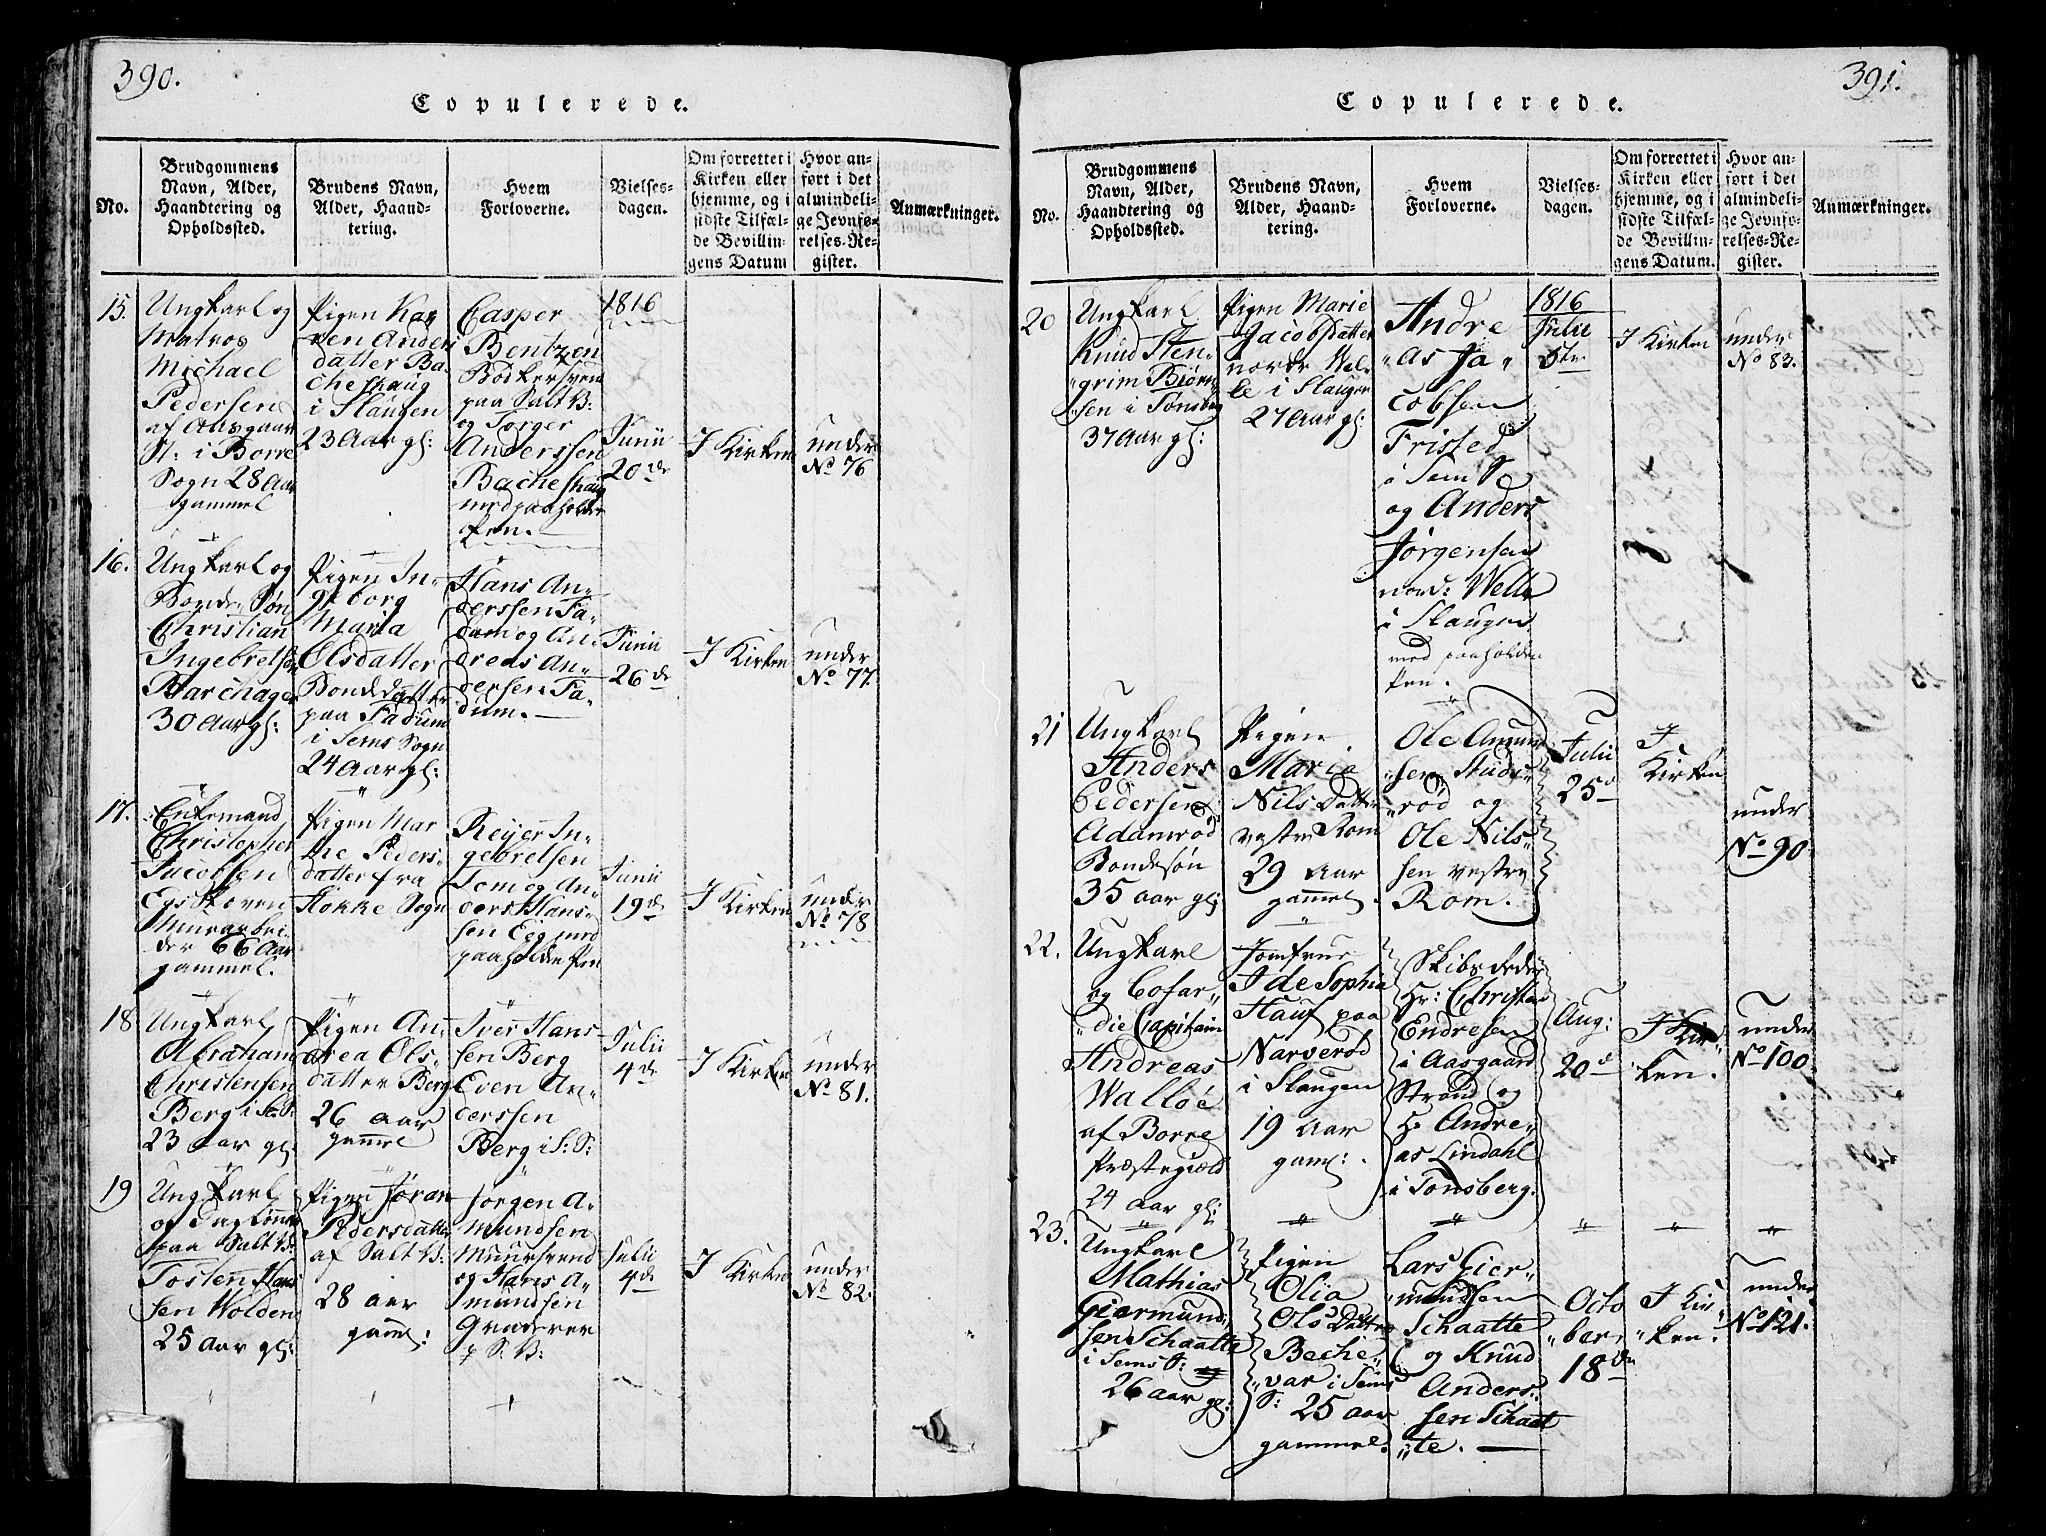 390.
Copulerede.
No.
Brudgommens
Navn, Alder,
Haandtering og
Opholdssted.
Brudens Navn,
Alder, Haand-
tering.
Hvem
Forloverne.
Vielses-
dagen.
Om forrettet i
Kirken eller
hjemme, og i
sidste Tilfæl-
de Bevillin-
gens Datum
Hvor an-
ført i det
almindeli-
ge Jevnfø-
relses-Re-
gister.
Anmærkninger.
15.
Ungkarl og
Matros
Michael
Pedersen
af Aasgaar
St: i Borre
Sogn 28 Aar
gammel
Pigen Ka
ren Anders
datter Ba-
cheshaug
i Slaugen
23 Aar gl:
Casper
Bentzen
Bödkersvend
paa Salt V:
og Torger
Anderssen
Bacheshaug
med paaholden
Pen.
1816
Junii
20de
I Kirken
under
No 76
16.
Ungkarl og
Bonde Søn
Christian
Ingebretsen
Barchager
30 Aar gl:
Pigen In-
geborg
Maria
Olsdatter
Bondedatter
paa Fadum
i Sems Sogn
24 Aar gl:
Hans An-
derssen Fa-
dum og An-
dreas An-
dersen Fa-
dum.
Junii
26de
I Kirken
under
No 77.
17.
Enkemand
Christopher
Jacobsen
Egs Skoven
Muurarbei-
der 66 Aar
gammel.
Pigen Mar
the Peders-
datter fra
Høkke Sogn
Reijer In-
gebretsen
Tem og An-
ders Hans-
sen Eeg med
paaholden Pen
Junii
19de
I Kirken
under
No 78
18
Ungkarl
Abraham
Christensen
Berg i S: S:
23 aar gl.
Pigen An-
drea Ols-
datter Berg
26 aar
gammel
Iver Hans-
sen Berg
Even An-
derssen
Berg i S: S:
Julii
4de
I Kirken
under
No 81.
19
Ungkarl
og Daglönner
paa Salt V:
Tosten Hans
sen Wolden
25 aar gl:
Pigen Jøran
Pedersdatter
af Salt V:
28 aar
gaml:
Jørgen A-
mundsen
Muursvend
og Hans A-
mundsen
Graverer
p S: V:
Julii
4de
I Kirken
under
No 82.
391.
Copulerede.
No.
Brudgommens
Navn, Alder,
Haandtering og
Opholdssted.
Brudens Navn,
Alder, Haand-
tering.
Hvem
Forloverne.
Vielses-
dagen.
Om forrettet i
Kirken eller
hjemme, og i
sidste Tilfæl-
de Bevillin-
gens Datum.
Hvor an-
ført i det
almindeli-
ge Jevnfø-
relses-Re-
gister.
Anmærkninger.
20
Ungkarl
Knud Sten-
grim Biørn
sen i Tønsberg
37 Aar gl:
Pigen Marie
Jacobsdatter
nordre Wel-
le i Slaugen
27 Aar gl:
Andre
as Ja
cobsen
Fristed
i Sem S
og Anders
Jørgensen
nord: Welle
i Slaugen
med paaholden
Pen.
1816
Julii
5te
I Kirken
under
No 83.
21
Ungkarl
Anders
Pedersen
Adamrød
Bondesøn
35 aar gl:
Pigen
Maria
Nils Datter
vestre Rom
29 Aar
gammel.
Ole Amund
sen Stude
rød og
Ole Nils-
sen vestre
Rom.
Julii
25de
I
Kirken
under
No 90.
22.
Ungkarl
og Cofar
die Capitain
Andreas
Walløe
af Borre
Præstegield
24 aar gl:
Jomfrue
Ide Sophia
Hauf paa
Narverød
i Slaugen
19 Aar
gaml:
Skibs Reder
Hr: Christen
Endresen
i Aasgaard
Strand og
Hr Andre
as Lindahl
i Tønsberg.
Aug:
20de
I Kir
ken.
under
No 100.
23.
Ungkarl
Mathias
Giermund
sen Schaatte
i Sems S:
26 aar gl:
Pigen
Olia
Ols Datter
Beche
var i Sems
S: 25 aar
gammel.
Lars Gier
mundsen
Schaatte
og Knud
Anders
sen Schaat
te.
Octo
ber
18de
I Kir
ken.
under
No 121.